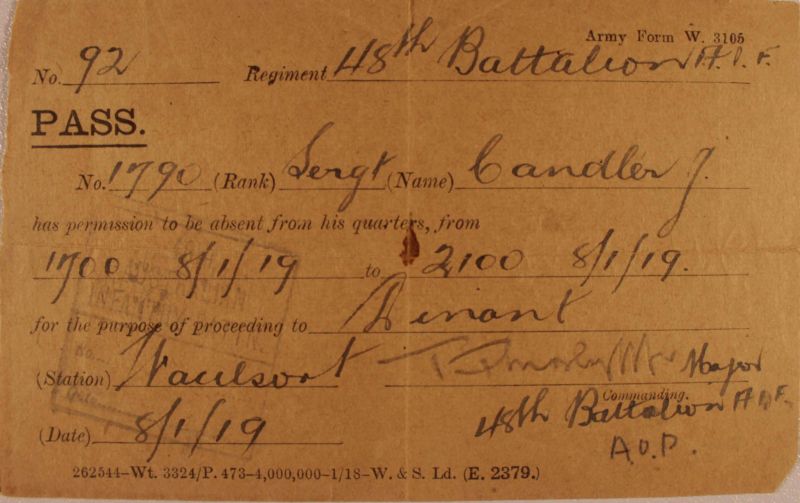 Army Form W. 3105
No. 92 Regiment 48th Battalion A.I.F.
PASS.
No. 1790 (Rank) Sergt (Name) Candler J.
has permission to be absent from his quarters, from
1700 8/1/19 to 2100 8/1/19.
for the purpose of proceeding to Dinant
(Station) Waulsort Major
Commanding.
(Date) 8/1/19 48th Battalion A.I.F.
262544–Wt. 3324/P. 473–4,000,000–1/18–W. & S. Ld. (E. 2379.)